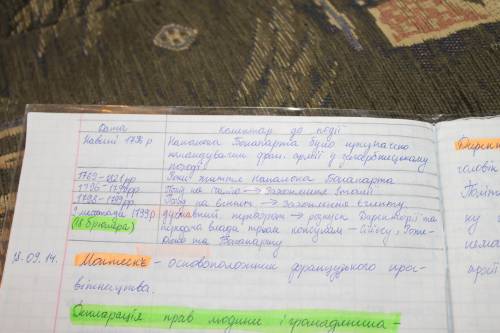 Дата Коментар до події
Навесні 1796 р Наполеона Бонапарта було призначено
командувачем фран. армії у італійському
поході
1769-1821 рр Роки життя Наполеона Бонапарта
1796-1797рр Похід на Італію → Захоплення Італії
1798-1799 рр Похід на Єгипет → Захоплення Єгипту
9 листопада 1799р державний переворот → розпуск Директорії та
(18 брюмера) передача влади трьом консулам - Сійєсу,
та Бонапарту
18.09.14. Монтеск'є - основоположник французького про-
світництва.
Декларація прав людини і громадянина -
Дирек
чоловік
Політ
ку
нема